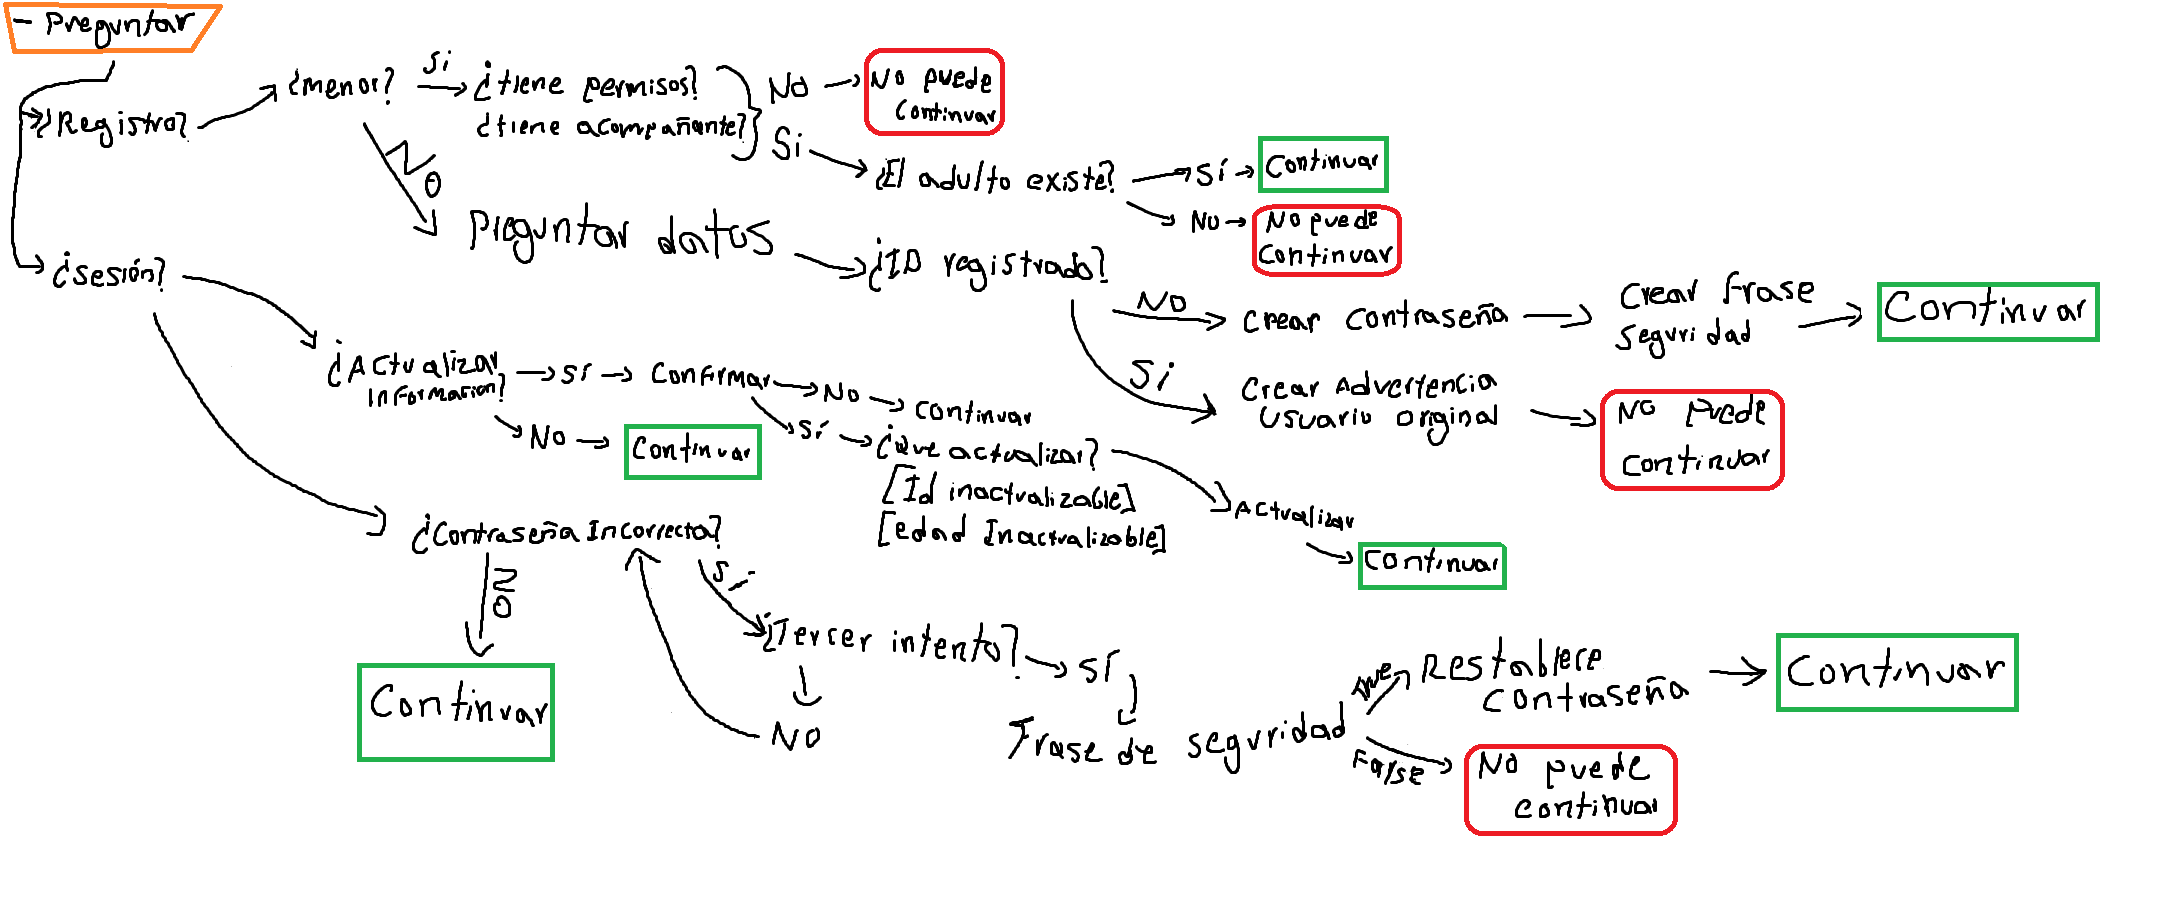 - Preguntar
¿Registro?
¿menor?
Si
¿tiene permisos?
¿tiene acompañante?
No
No puede
continuar
Si
¿El adulto existe?
Sí
Continuar
No
No puede
Continuar
No
Preguntar datos
¿ID registrado?
No
Crear contraseña
Crear frase
seguridad
Continuar
Si
Crear Advertencia
Usuario original
No puede
continuar
¿sesión?
¿Actualizar
informacion?
sí
Confirmar
No
continuar
sí
¿Que actualizar?
[Id inactualizable]
[edad Inactualizable]
Actualizar
Continuar
No
Continuar
¿Contraseña Incorrecta?
No
Continuar
Si
¿Tercer intento?
No
sí
Frase de seguridad
true
Restablece
contraseña
Continuar
False
No puede
continuar